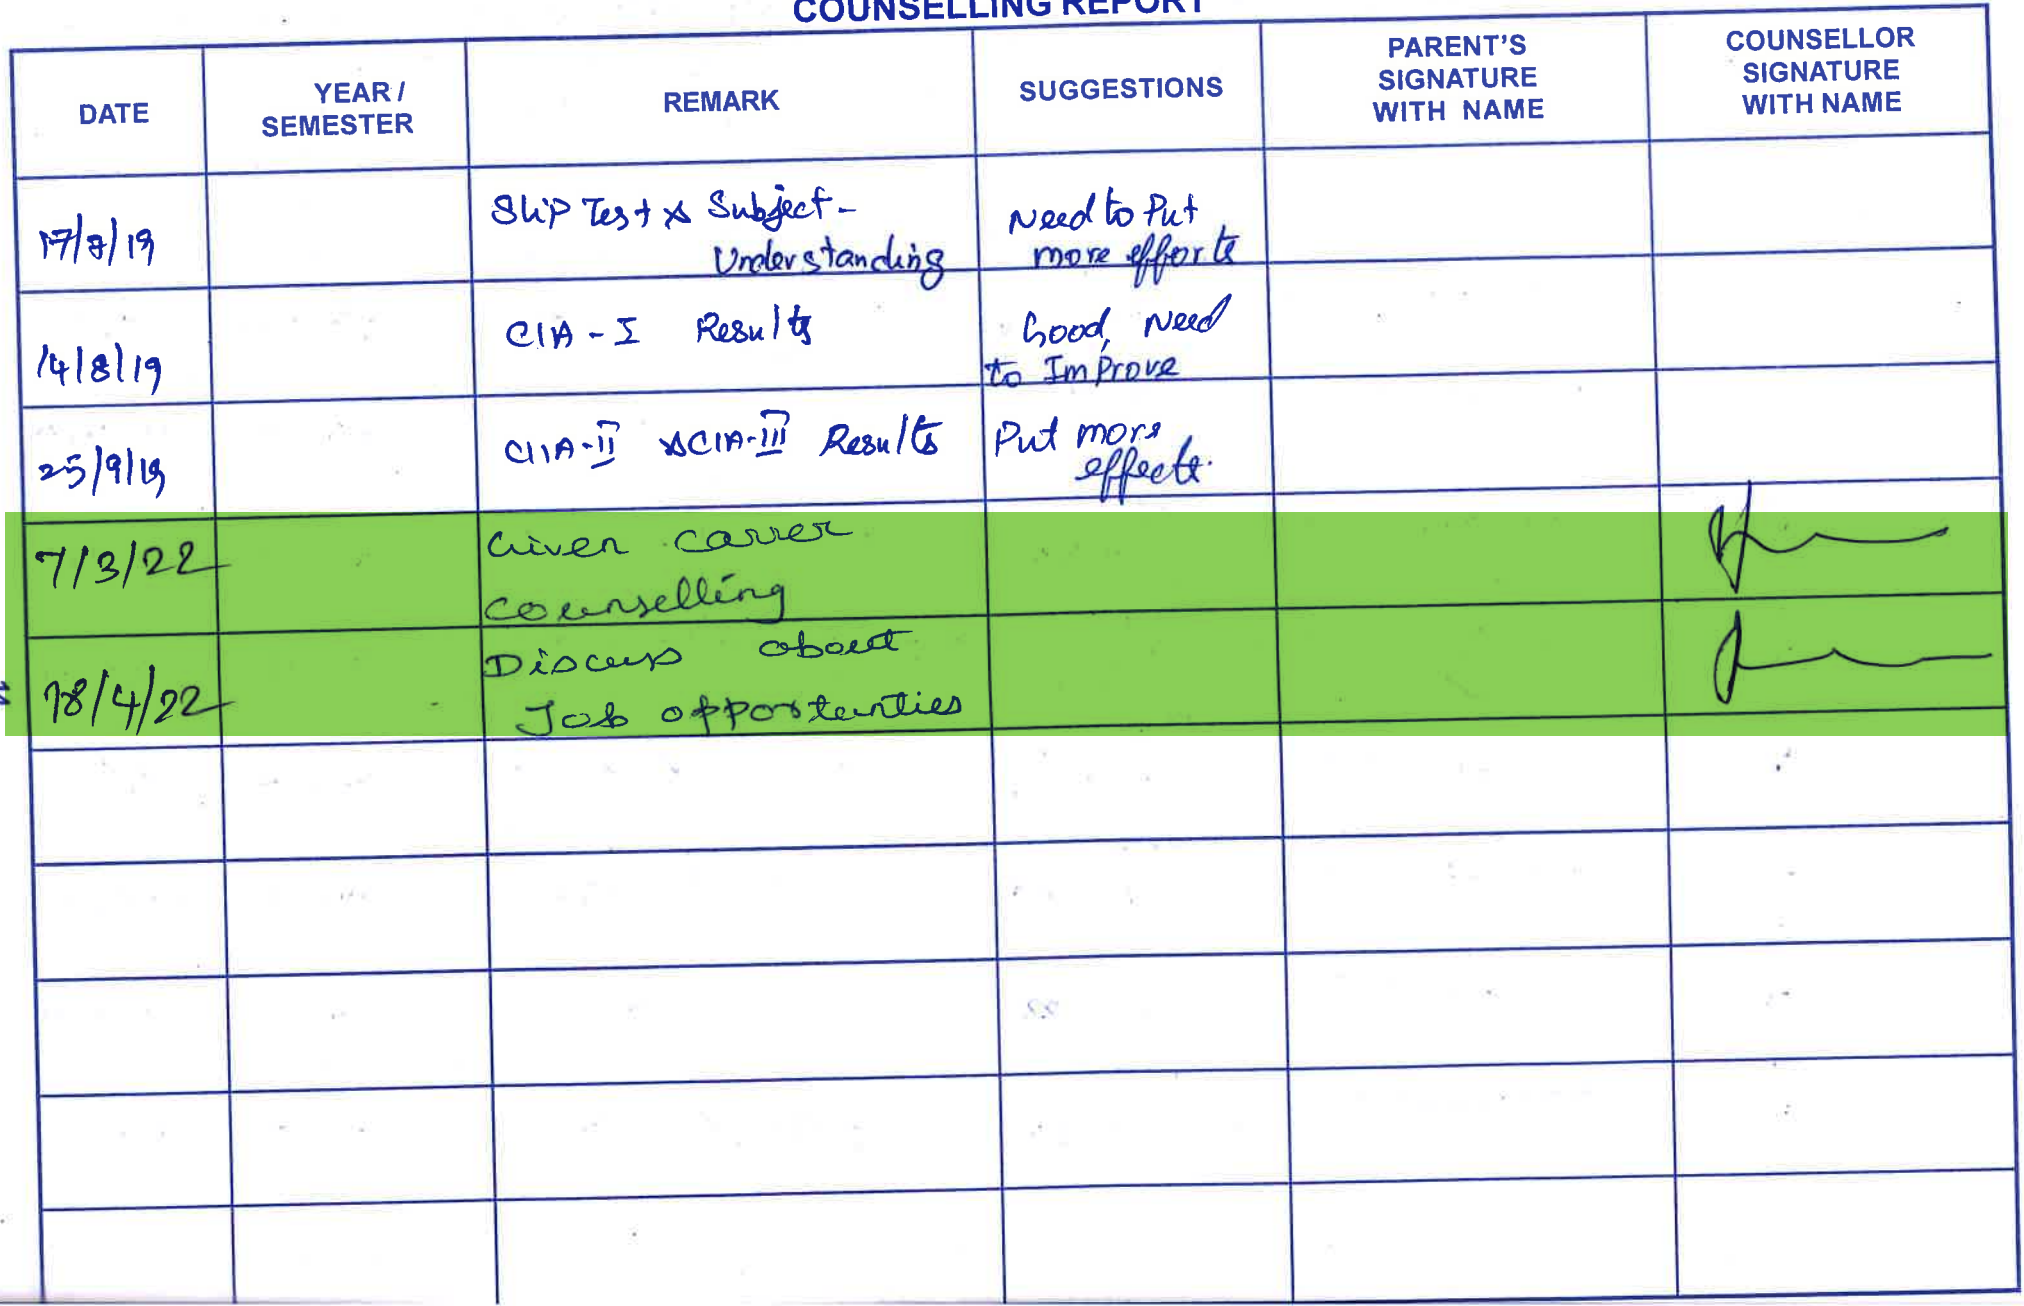 COUNSELLING REPORT
DATE
YEAR / SEMESTER
REMARK
SUGGESTIONS
PARENT'S SIGNATURE WITH NAME
COUNSELLOR SIGNATURE WITH NAME
Slip Test & Subject-
Understanding
Need to Put
more efforts
14/8/19
CIA - I Results
Good, Need
to Improve
25/9/19
CIIA-II & CIA-III Results
Put more
effects.
7/3/22
Given carrer
counselling
18/4/22
Discuss about
Job opportunities